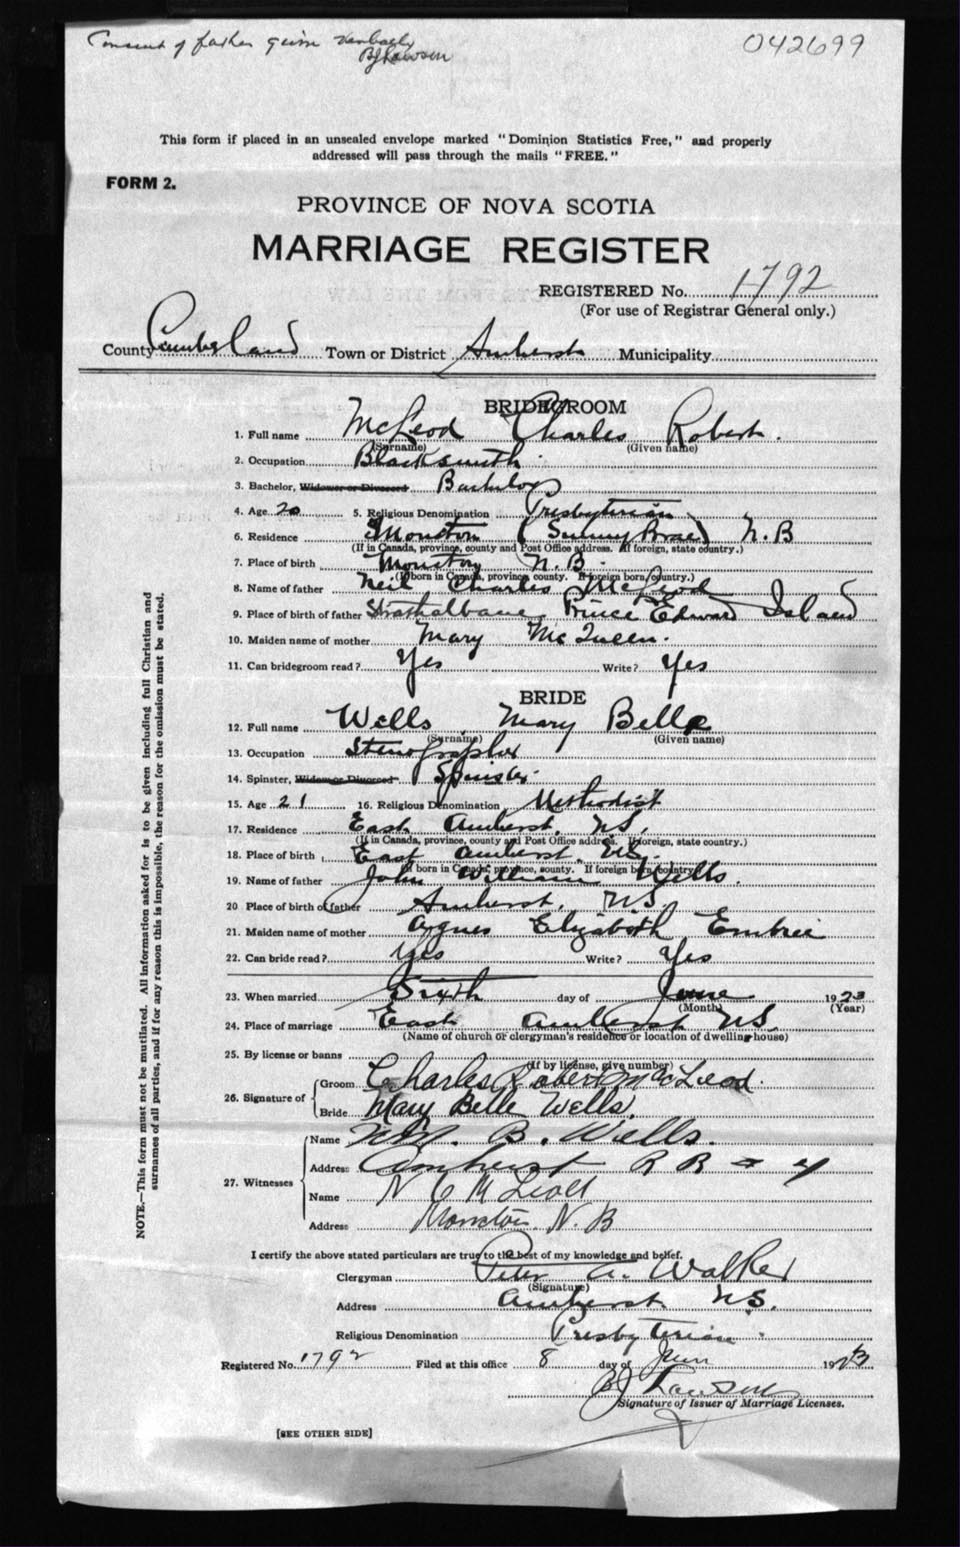 Consent of father given verbally
BJ Lawson
042699
This form if placed in an unsealed envelope marked "Dominion Statistics Free," and properly
addressed will pass through the mails "FREE."
FORM 2.
PROVINCE OF NOVA SCOTIA
MARRIAGE REGISTER
REGISTERED No. 1792
(For use of Registrar General only.)
County Cumberland Town or District Amherst Municipality
BRIDEGROOM
1. Full name McLeod Charles Robert.
(Surname) (Given name)
2. Occupation Blacksmith.
3. Bachelor, Widower or Divorced Bachelor
4. Age 20 5. Religious Denomination Presbyterian
6. Residence Moncton (Sunny Brae) N.B
(If in Canada, province, county and Post Office address. If foreign, state country.)
7. Place of birth Moncton N.B.
(If born in Canada, province county. If foreign born, country.)
8. Name of father Neil Charles McLeod
9. Place of birth of father Strathalbane, Prince Edward Island
10. Maiden name of mother Mary McQueen.
11. Can bridegroom read? Yes Write? Yes
BRIDE
12. Full name Wells Mary Belle
(Surname) (Given name)
13. Occupation Stenographer
14. Spinster, Widow or Divorced Spinster.
15. Age 21 16. Religious Denomination Methodist
17. Residence East Amherst, NS,
(If in Canada, province, county and Post Office address. If foreign, state country.)
18. Place of birth East Amherst, NS.
(If born in Canada, province, county. If foreign born, country.)
19. Name of father John William Wells.
20 Place of birth of father Amherst, NS.
21. Maiden name of mother Agnes Elizabeth Embree
22. Can bride read? Yes Write? Yes
23. When married Sixth day of June 1923
(Month) (Year)
24. Place of marriage East Amherst NS.
(Name of church or clergyman's residence or location of dwelling house)
25. By license or banns
(If by license, give number)
26. Signature of
Groom Charles Robert MacLeod.
Bride Mary Belle Wells.
27. Witnesses
Name B. Wells.
Address Amherst R R # 4
Name N C McLeod
Address Moncton N. B
I certify the above stated particulars are true to the best of my knowledge and belief.
Clergyman Peter A. Walker
(Signature)
Address Amherst NS.
Religious Denomination Presbyterian.
Registered No. 1792 Filed at this office 8 day of June 1923
BJ Lawson
Signature of Issuer of Marriage Licenses.
[SEE OTHER SIDE]
NOTE.—This form must not be mutilated. All information asked for is to be given including full Christian and
surnames of all parties, and if for any reason this is impossible, the reason for the omission must be stated.